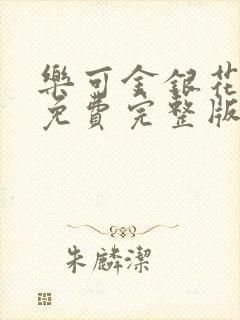 樂可金銀花
免費完整版
朱麟潔